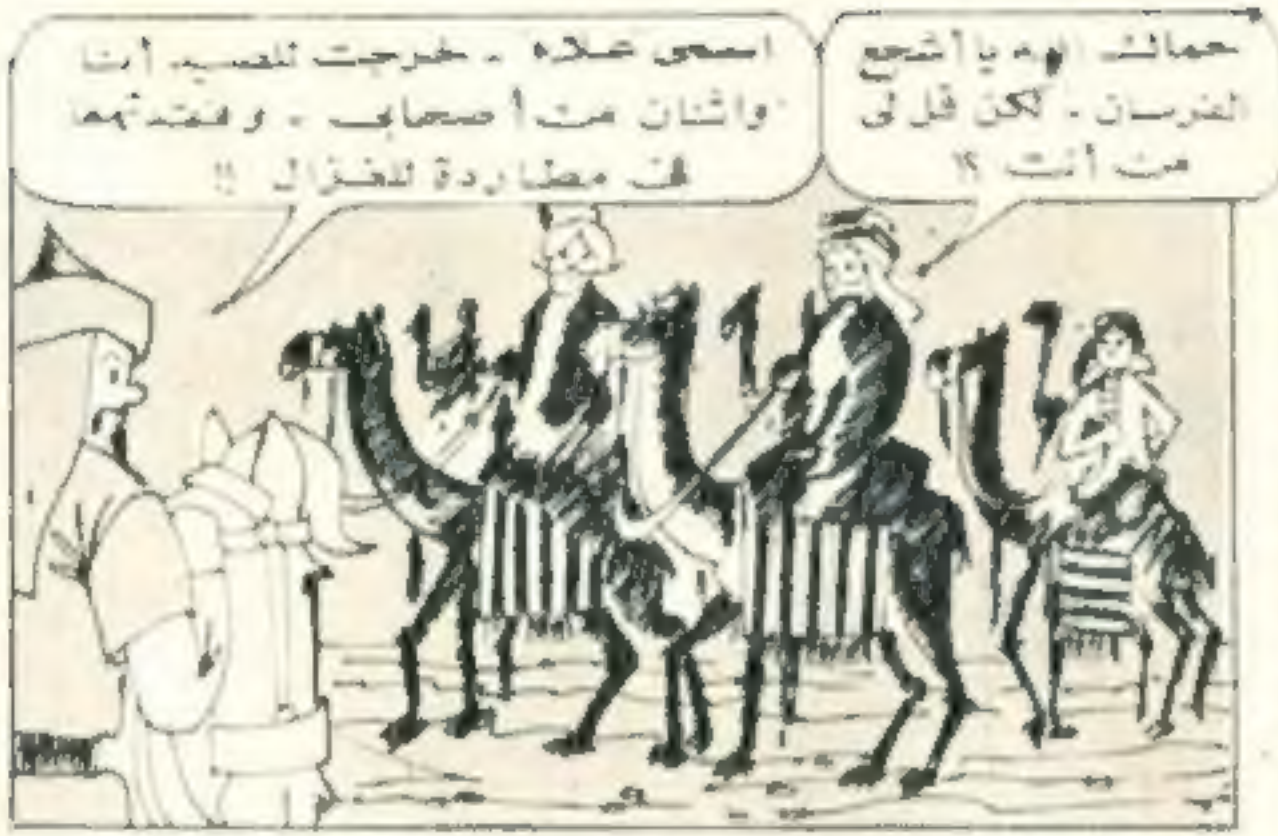 حماك الله يا أشجع
الفرسان - لكن قل لى
من أنت ؟!
اسمى علاء - خرجت للصيد أنا
واثنان من أصحابى - وفقدتهما
فى مطاردة للغزال !!